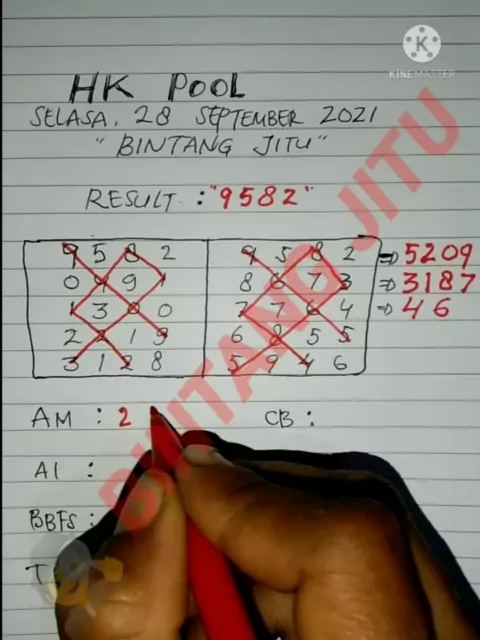 K
KINEMASTER
HK POOL
SELASA, 28 SEPTEMBER 2021
"BINTANG JITU"
RESULT : "9582"
9 5 8 2 9 5 8 2 ⇒ 5209
0 4 9 1 8 6 7 3 ⇒ 3187
1 3 0 0 7 7 6 4 ⇒ 46
2 2 1 9 6 8 5 5
3 1 2 8 5 9 4 6
AM : 2 CB :
AI :
BBFS :
BINTANG JITU